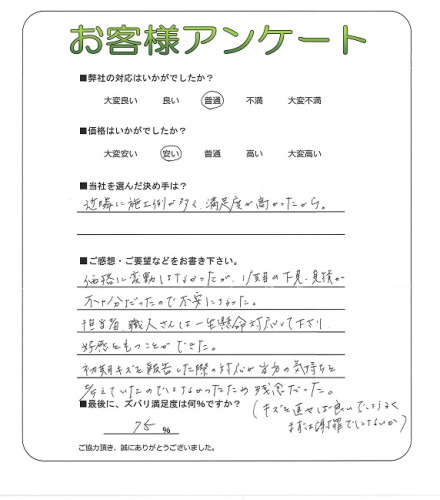 お客様アンケート
■弊社の対応はいかがでしたか?
大変良い 良い 普通 不満 大変不満
■価格はいかがでしたか?
大変安い 安い 普通 高い 大変高い
■当社を選んだ決め手は?
近隣に施工例が多く、満足度が高かったから。
■ご感想・ご要望などをお書き下さい。
価格に変動はなかったが、1度目の下見、見積が
不十分だったので不安になった。
担当者、職人さんは一生懸命対応して下さり、
好感をもつことができた。
初期キズを報告した際の対応が当方の気持ちを
考えていたのではなかったため残念だった。
■最後に、ズバリ満足度は何%ですか?
(キズを直せば良いでしょうでなく
まずは謝罪でしょないか)
75 %
ご協力頂き、誠にありがとうございました。